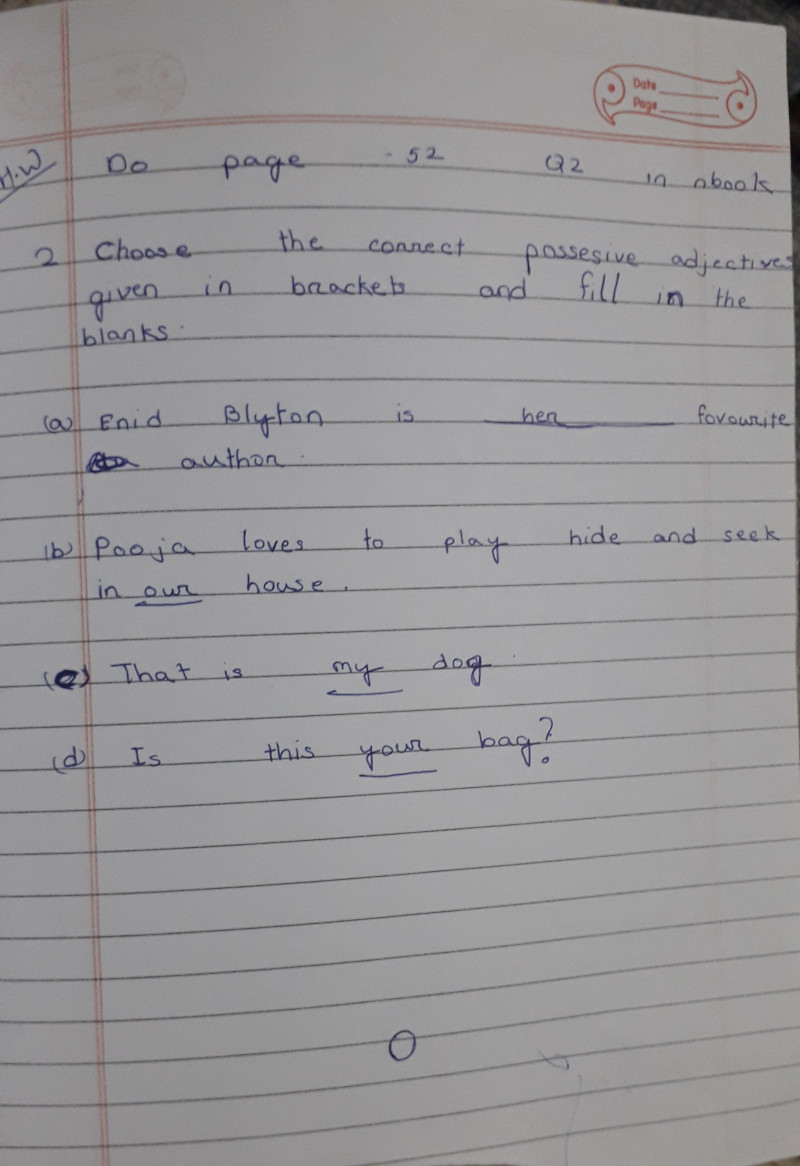 Date
Page
H.W Do page - 52 Q2 in nbook
2 Choose the correct possesive adjectives
given in brackets and fill in the
blanks.
(a) Enid Blyton is her favourite
author.
(b) Pooja loves to play hide and seek
in our house.
(c) That is my dog.
(d) Is this your bag?